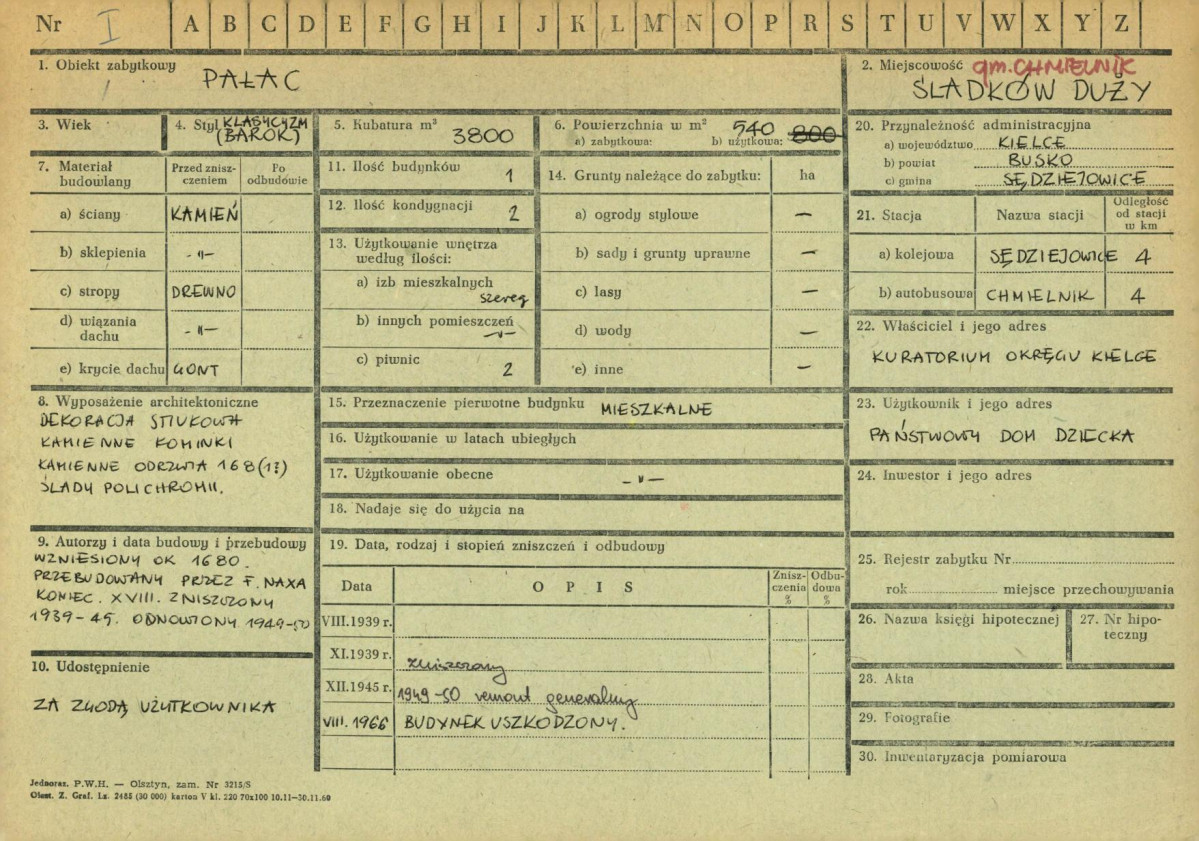 Nr I A B C D E F G H I J K L M N O P R S T U V W X Y Z
1. Obiekt zabytkowy PAŁAC
2. Miejscowość gm. CHMIELNIK
ŚLADKÓW DUŻY
3. Wiek
4. Styl KLASYCYZM
(BAROK)
5. Kubatura m³ 3800
6. Powierzchnia w m² 540
a) zabytkowa: b) użytkowa: 800
7. Materiał budowlany
Przed zniszczeniem
Po odbudówie
a) ściany KAMIEŃ
b) sklepienia -"-
c) stropy DREWNO
d) wiązania dachu -"-
e) krycie dachu GONT
8. Wyposażenie architektoniczne
DEKORACJA STIUKOWA
KAMIENNE KOMINKI
KAMIENNE ODRZWIA 168(1?)
ŚLADY POLICHROMII.
9. Autorzy i data budowy i przebudowy
WZNIESIONY OK 1680.
PRZEBUDOWANY PRZEZ F. NAXA
KONIEC. XVIII. ZNISZCZONY
1939-45. ODNOWIONY 1949-50
10. Udostępnienie
ZA ZGODĄ UŻYTKOWNIKA
11. Ilość budynków 1
12. Ilość kondygnacji 2
13. Użytkowanie wnętrza
według ilości:
a) izb mieszkalnych
szereg
b) innych pomieszczeń
-"-
c) piwnic 2
14. Grunty należące do zabytku: ha
a) ogrody stylowe —
b) sady i grunty uprawne —
c) lasy —
d) wody —
e) inne —
15. Przeznaczenie pierwotne budynku MIESZKALNE
16. Użytkowanie w latach ubiegłych
17. Użytkowanie obecne -"-
18. Nadaje się do użycia na
19. Data, rodzaj i stopień zniszczeń i odbudowy
Data
O P I S
Zniszczenia %
Odbudowa %
VIII.1939 r.
XI.1939 r. zniszczony
XII.1945 r. 1949-50 remont generalny
VIII.1966 BUDYNEK USZKODZONY.
20. Przynależność administracyjna
a) województwo KIELCE
b) powiat BUSKO
c) gmina SĘDZIEJOWICE
21. Stacja
Nazwa stacji
Odległość od stacji w km
a) kolejowa SĘDZIEJOWICE 4
b) autobusowa CHMIELNIK 4
22. Właściciel i jego adres
KURATORIUM OKRĘGU KIELCE
23. Użytkownik i jego adres
PAŃSTWOWY DOM DZIECKA
24. Inwestor i jego adres
25. Rejestr zabytku Nr
rok miejsce przechowywania
26. Nazwa księgi hipotecznej
27. Nr hipoteczny
28. Akta
29. Fotografie
30. Inwentaryzacja pomiarowa
Jednoraz. P.W.H. — Olsztyn, zam. Nr 3215/S
Olszt. Z. Graf. Lz. 2485 (30 000) karton V kl. 220 70x100 10.11—30.11.60